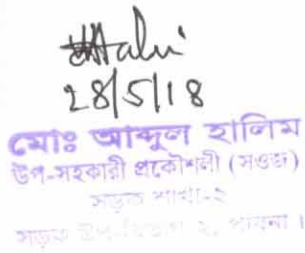 28/5/18
মোঃ আব্দুল হালিম
উপ-সহকারী প্রকৌশলী (সওজ)
সড়ক শাখা-২
সড়ক উপ-বিভাগ ২, পাবনা।